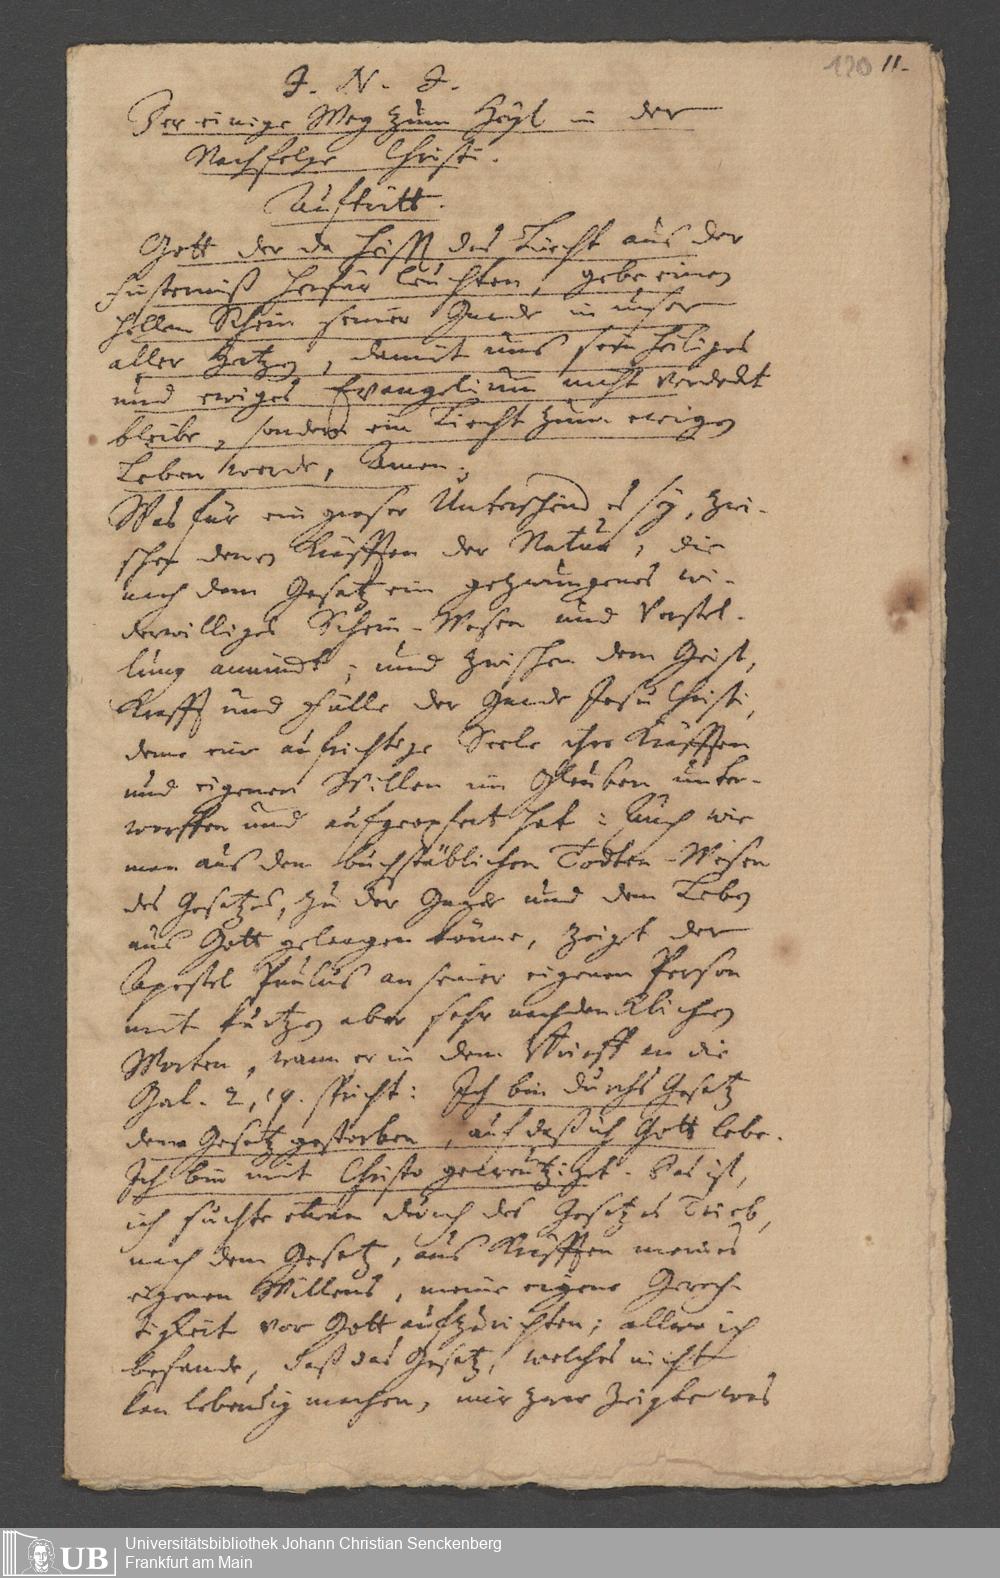 120 11.
J. N. J.
Der einige Weg zum Heyl in der
Nachfolge Christi.
Auftritt.
Gott der da hiess das Liecht aus der
Finsternuß herfür leuchten, gebe einen
hellen Schein seiner Gnade in unser
aller Hertzen, damit uns sein heiliges
und ewiges Evangelium nicht verdeckt
bleibe, sondern ein Liecht zum ewigen
Leben werde, Amen.
Was für ein groser Unterschied es sey, zwi-
schen denen Kräfften der Natur, die
nach dem Gesetz ein gezwungenes wi-
derwilliges Schein-Wesen und Vorstel-
lung annimbt; und zwischen dem Geist,
Krafft und Fülle der Gnade Jesu Christi,
deme eine aufrichtige Seele ihre Kräfften
und eigenen Willen im Glauben unter-
worffen und aufgeopfert hat: Auch wie
man aus dem buchstäblichen Todten-Wesen
des Gesetzes, zu der Gnade und dem Leben
aus Gott gelangen könne, zeigt der
Apostel Paulus an seiner eigenen Person
mit kurtzen aber sehr nachdencklichen
Worten, wann er in dem Brieff an die
Gal. 2, 19. spricht: Ich bin durchs Gesetz
dem Gesetz gestorben, auf daß ich Gott lebe.
Ich bin mit Christo gecreutziget. Das ist,
ich suchte etwan durch des Gesetzes Trieb,
nach dem Gesetz, aus Kräfften meines
eigenen Willens, meine eigene Gerech-
tigkeit vor Gott aufzurichten; allein ich
befande, daß das Gesetz, welches nicht
kan lebendig machen, mir zwar zeigte was
UB
Universitätsbibliothek Johann Christian Senckenberg
Frankfurt am Main